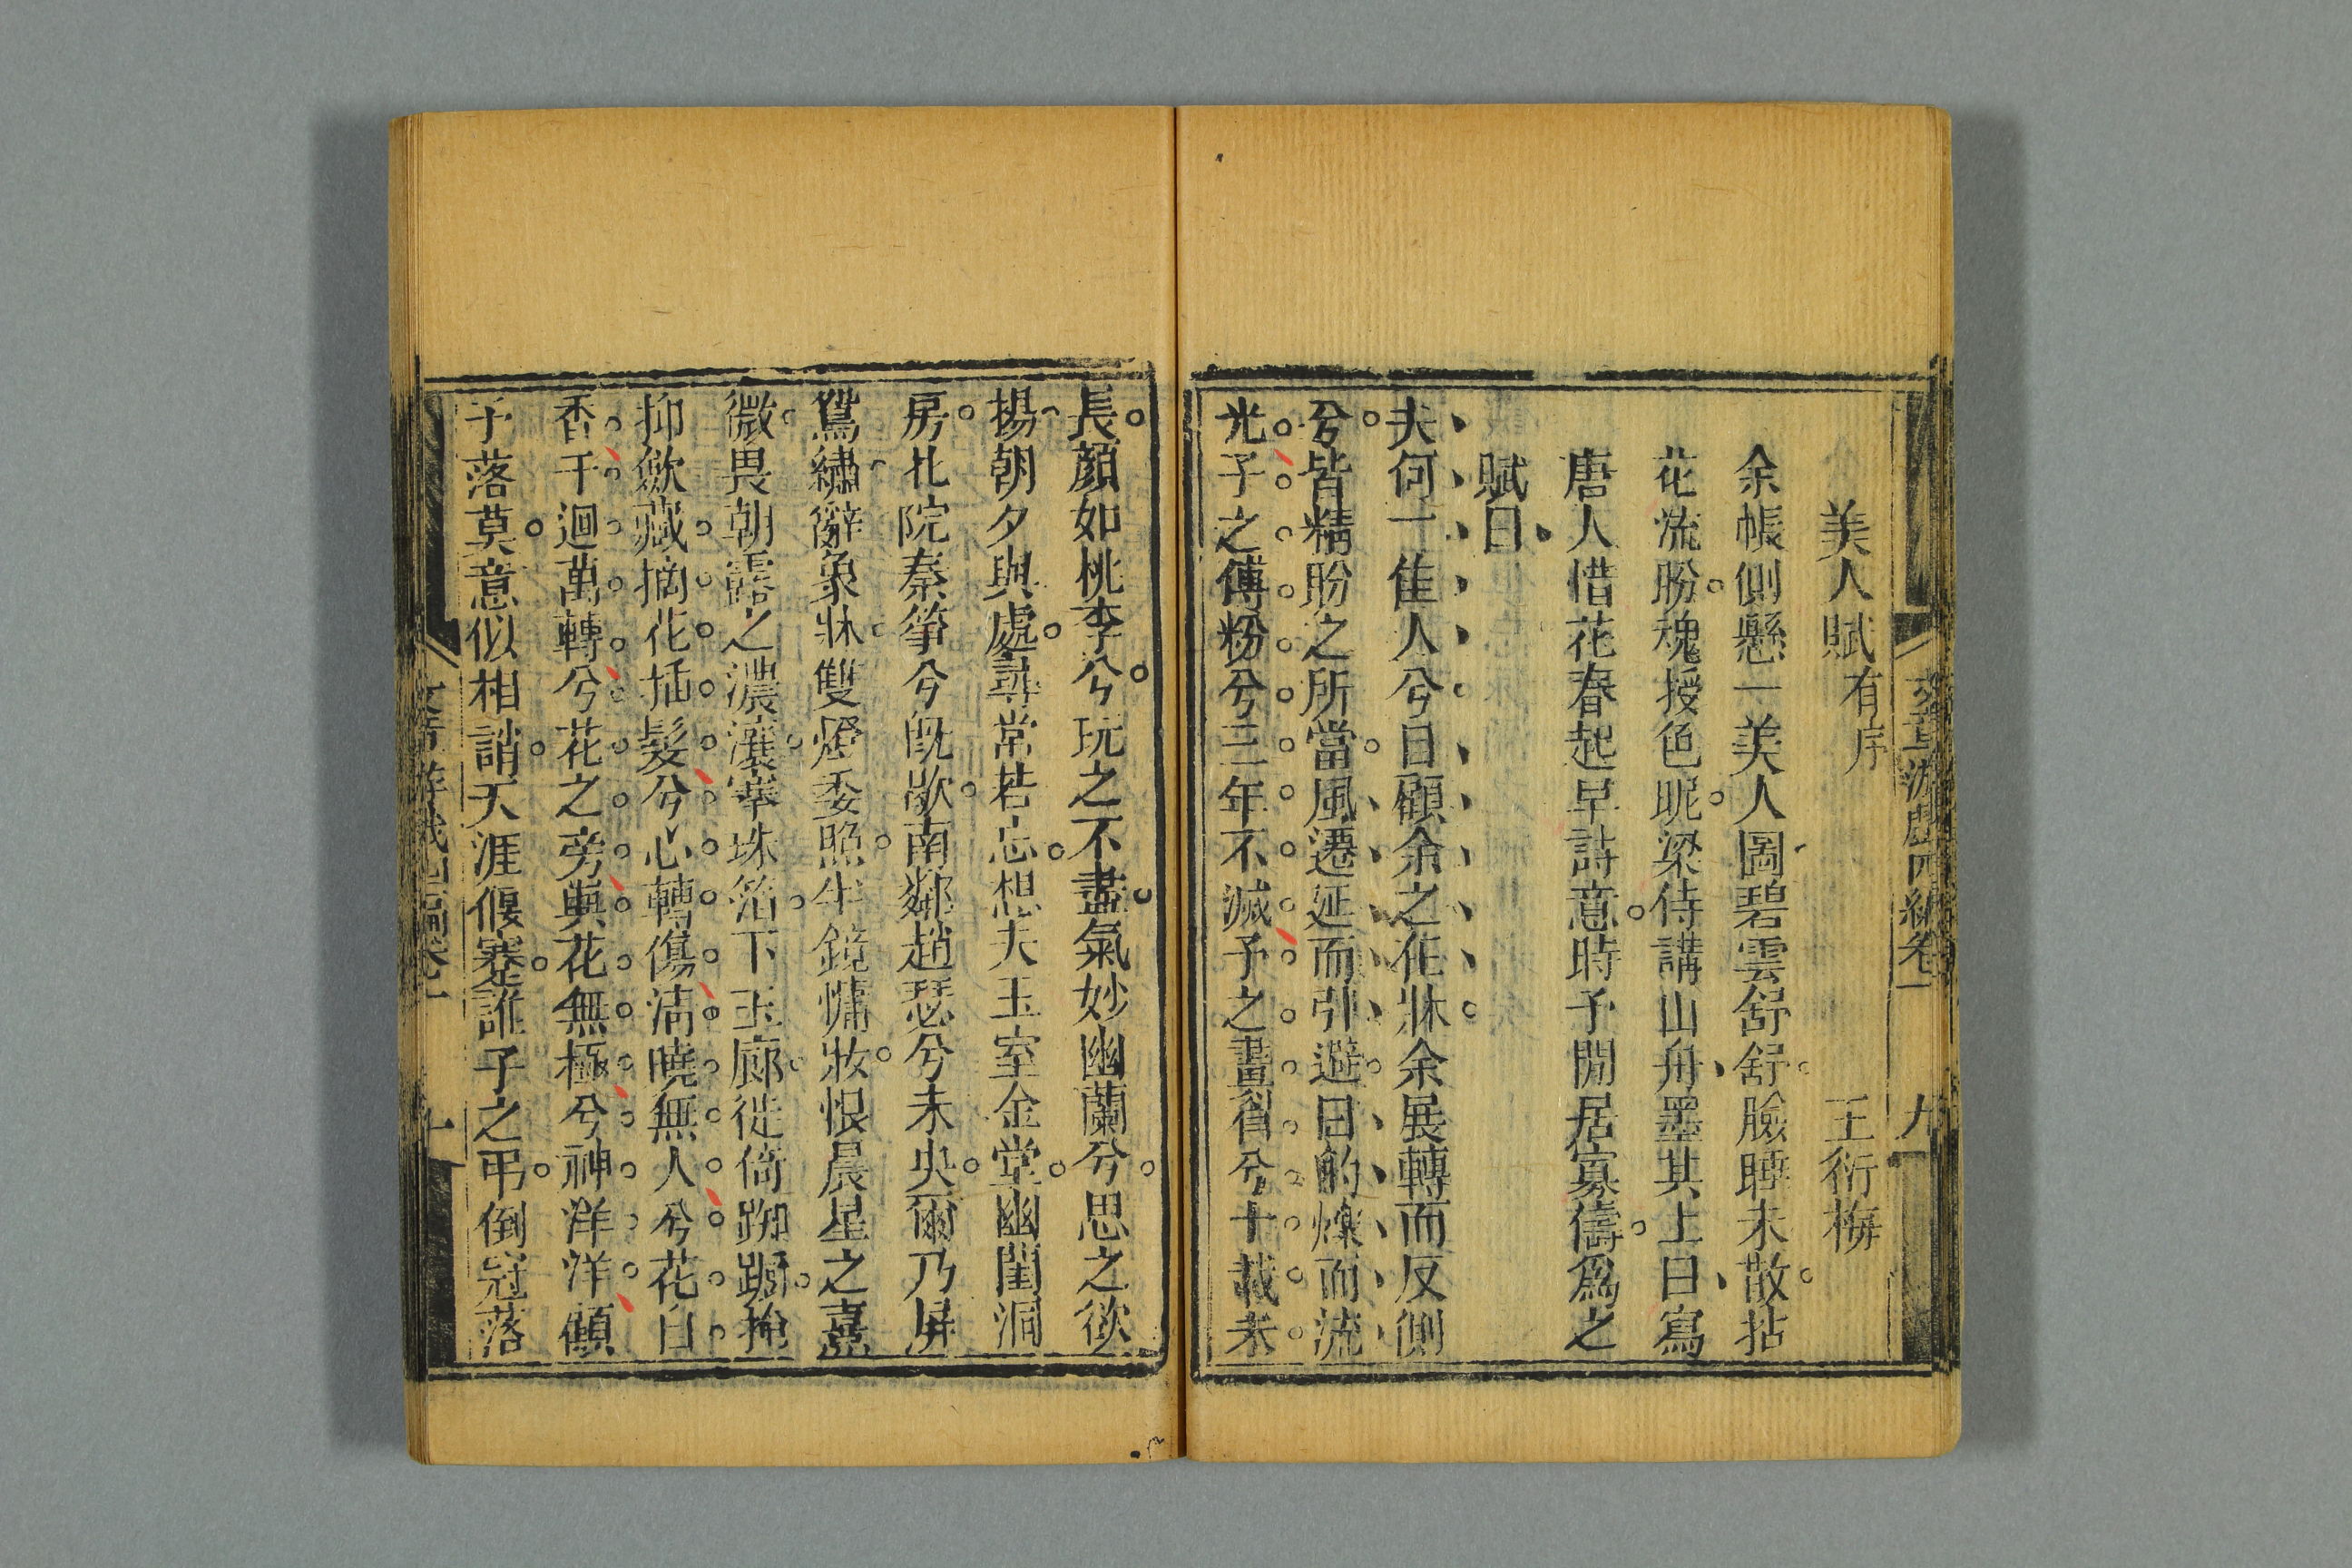 文章游戲四編卷一 九
美人賦有序 王衍梅
余帳側懸一美人圖碧雲舒舒臉睡未散拈
花流盼魂授色昵梁侍講山舟墨其上曰寫
唐人惜花春起早詩意時予閒居寡儔爲之
賦曰
夫何一佳人兮目顧余之在牀余展轉而反側
兮皆精盼之所當風遷延而引避日的爍而流
光子之傅粉兮三年不滅予之畫眉兮十載未
長顏如桃李兮玩之不盡氣妙幽蘭兮思之欲
揚朝夕與處尋常若忘想夫玉室金堂幽閨洞
房北院秦箏兮旣歇南鄰趙瑟兮未央爾乃屏
鴛繡辭象牀雙燈委照半鏡慵妝恨晨星之熹
微畏朝露之濃瀼搴珠箔下玉廊徙倚踟躕掩
抑歛藏摘花插髮兮心轉傷淸曉無人兮花自
香千迴萬轉兮花之旁與花無極兮神洋洋顧
予落莫意似相誚天涯偃蹇誰予之弔倒冠落
文章游戲四編卷一